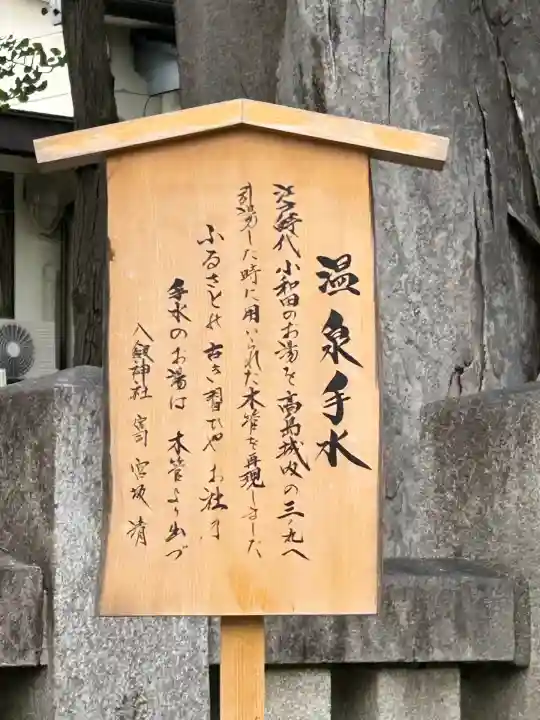 温泉手水
江戸時代 小和田のお湯を高島城内の三ノ丸へ
引湯した時に用いられた木管を再現しました
ふるさとの 古き習ひや お社の
手水のお湯は 木管より出づ
八剱神社 宮司 宮坂 清